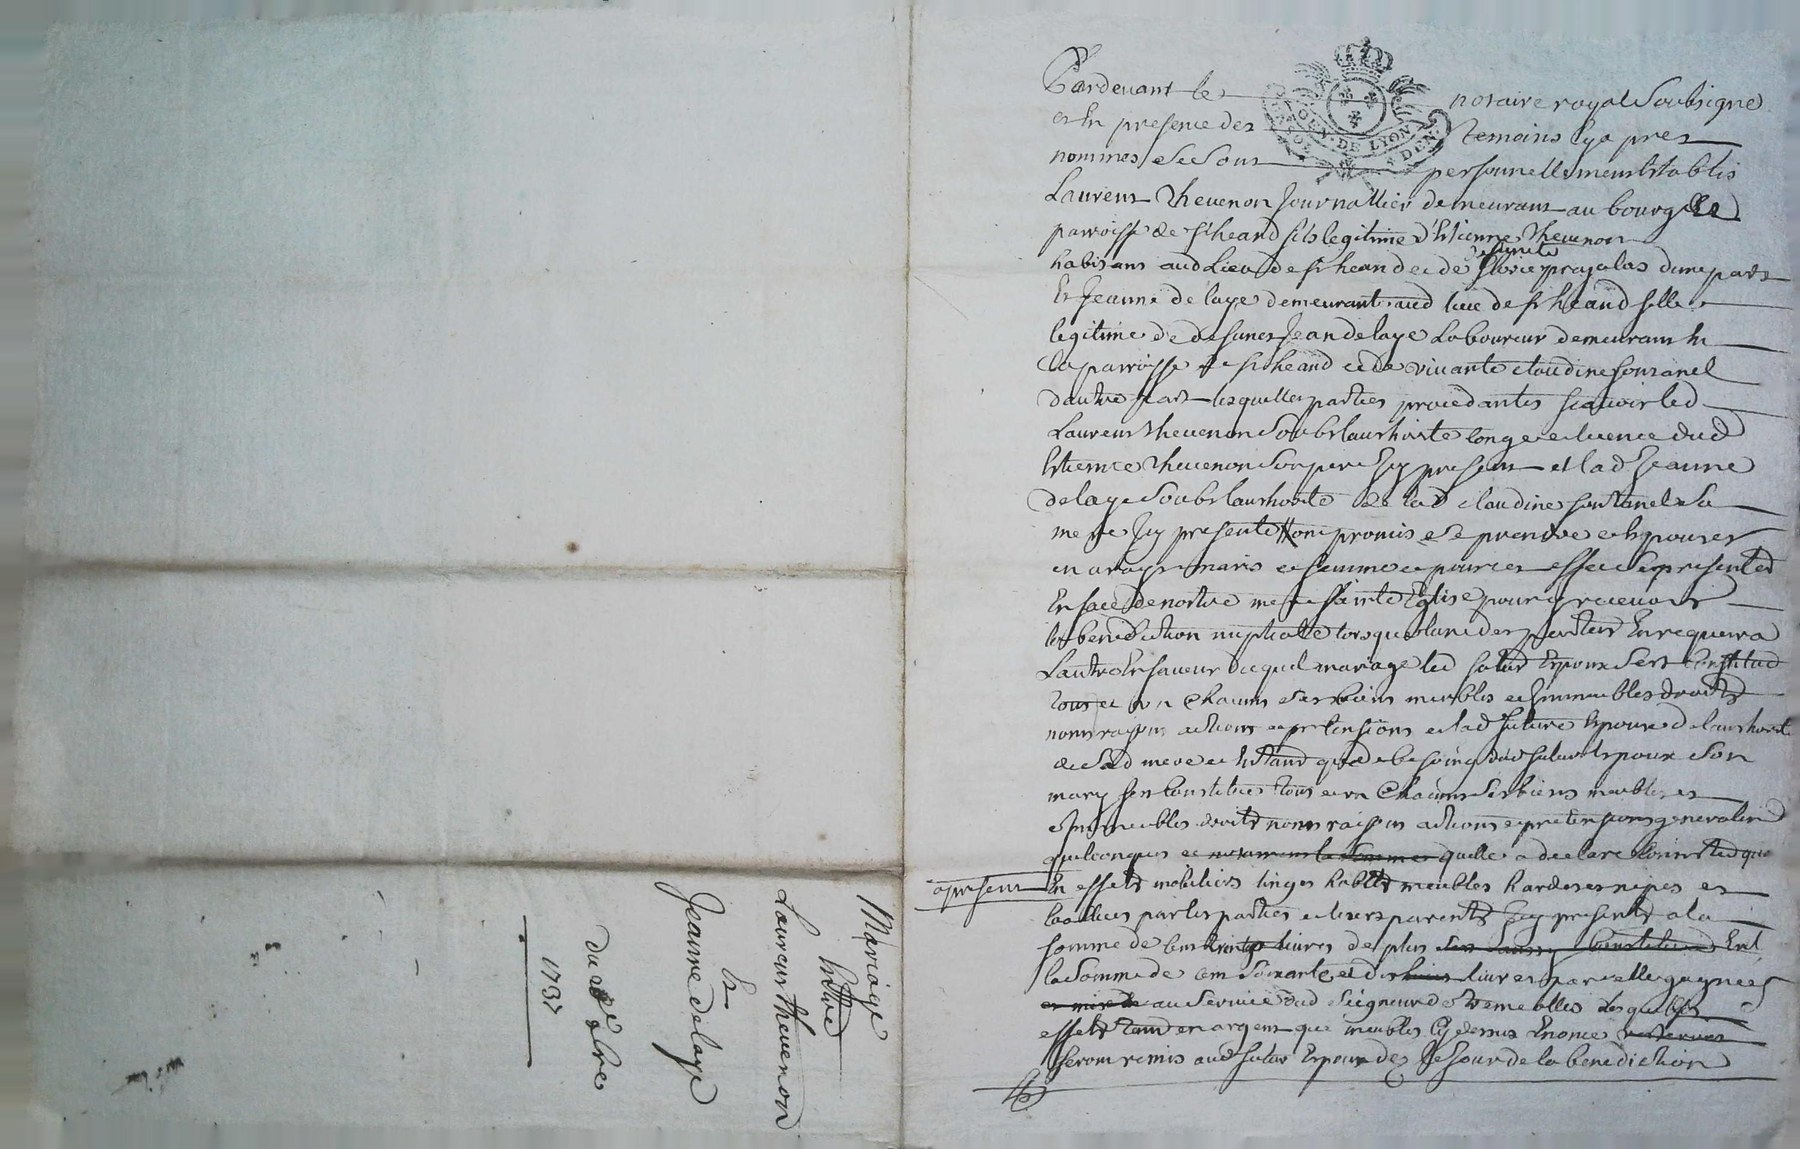 Pardevant le notaire royal Soubsigne
et En presence des temoins Cy apres
nommes et Sous personellement Establis
Laurens thevenon Journallier demeurant au bourg et
parroisse de st heand fils legitime d'Estienne thevenon
habitant aud Lieu de st heand et de deffunte pragalas dune part
Et Jeanne delaye demeurante aud lieu de st heand fille
legitime de defunct Jean delaye Laboureur demeurant En
la parroisse de st heand et de vivante Claudine fontanel
dautre part lesquelles parties procedantes scavoir led
Laurens thevenon Soubs lauthorite Conge et Licence dud
Estienne thevenon Son pere Icy present et lad Jeanne
delaye Soubs lauthorite de lad Claudine fontanel Sa
mere Icy presente ont promis de Se prendre et Epouser
en vray mari et femme et pour cet effet Se presenter
En face de nostre mere Sainte Eglise pour y recevoir
la benediction nuptiale lorsque lune des parties En requerra
Lautre En faveur duquel mariage led futur Epoux Sest Constitué
tous et un Chacuns Ses biens meubles et Immeubles droits
noms raisons actions et pretensions et lad future Epouse de lauthorité
de Sad mere et En tant que de besoing dud futur Epoux Son
mary Sen Constitue tous et un Chacuns Ses biens meubles et
Immeubles droits noms raisons actions et pretensions generalement
quelconques et notamment la Somme quelle a declaré Consister
apresent En effets mobiliers linges habits meubles hardes et nipes et
par les parties et leurs parents Icy presents a la
Somme de Cent trente livres de plus Constitue En
la Somme de Cent Soixante et dix livres par elle gagnées
au Service dud Seigneur de tremeolles Lesquels
effets tant en argent que meubles Cy dessus Enonces
Seront remis aud futur Epoux des le Jour de la benediction
Mariage
Entre
Laurens thevenon
Et
Jeanne delaye
du 8bre
1737